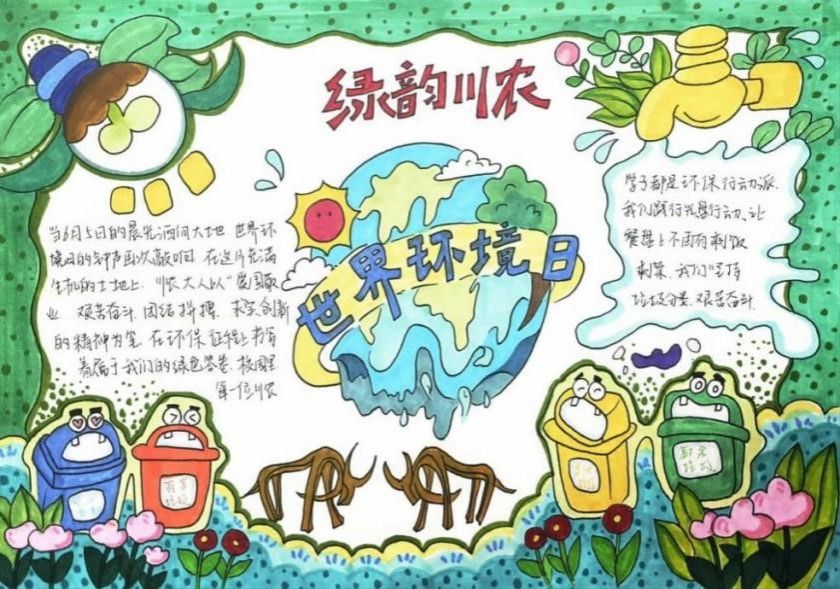 绿韵川农
世界环境日
当6月5日的晨光洒向大地 世界环
境日的钟声再次敲响 在这片充满
生机的土地上. "农大人以"爱国敬
业 艰苦奋斗 团结拼搏 求实创新
的精神为笔 在环保征程上书写
着属于我们的绿色答卷. 校园里
每一位川农
学子都是环保行动派.
我们践行光盘行动、让
餐盘上不再有剩饭
剩菜. 我们坚持
垃圾分类. 艰苦奋斗.
有害
垃圾
厨余
垃圾